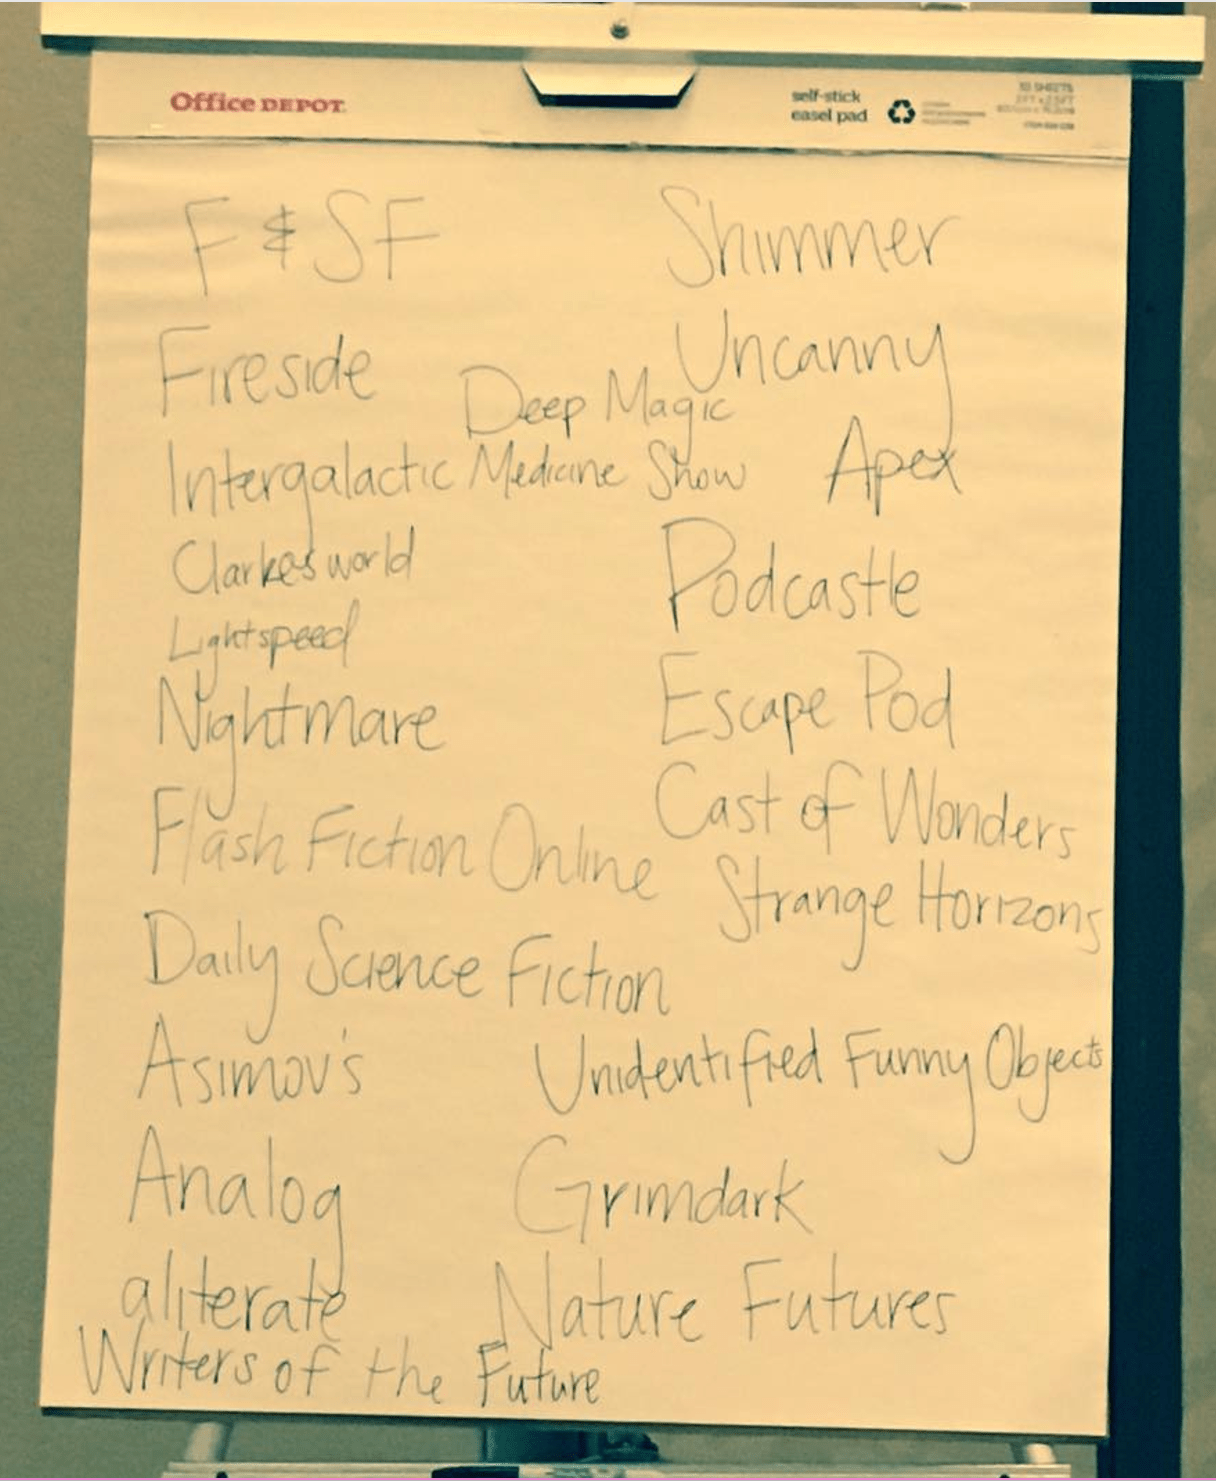 Office DEPOT.
self-stick
easel pad
F & SF
Shimmer
Fireside
Uncanny
Deep Magic
Intergalactic Medicine Show
Apex
Clarkesworld
Podcastle
Lightspeed
Nightmare
Escape Pod
Flash Fiction Online
Cast of Wonders
Strange Horizons
Daily Science Fiction
Asimov's
Unidentified Funny Objects
Analog
Grimdark
aliterate
Nature Futures
Writers of the Future